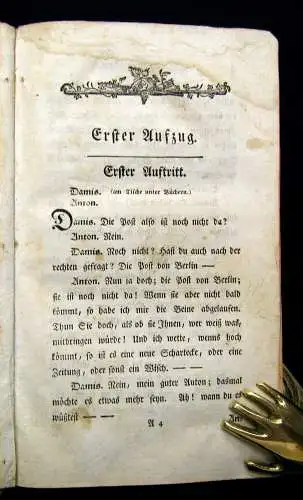 Erster Aufzug.
Erster Auftritt.
Damis. (am Tische unter Büchern.)
Anton.
Damis. Die Post also ist noch nicht da?
Anton. Nein.
Damis. Noch nicht? Hast du auch nach der
rechten gefragt? Die Post von Berlin —
Anton. Nun ja doch; die Post von Berlin;
sie ist noch nicht da! Wenn sie aber nicht bald
kömmt, so habe ich mir die Beine abgelaufen.
Thun Sie doch, als ob sie Ihnen, wer weiß was,
mitbringen würde! Und ich wette, wenns hoch
kömmt, so ist es eine neue Scharteke, oder eine
Zeitung, oder sonst ein Wisch. —
Damis. Nein, mein guter Anton; dasmal
möchte es etwas mehr seyn. Ah! wann du es
wüßtest — —
A 4 An-